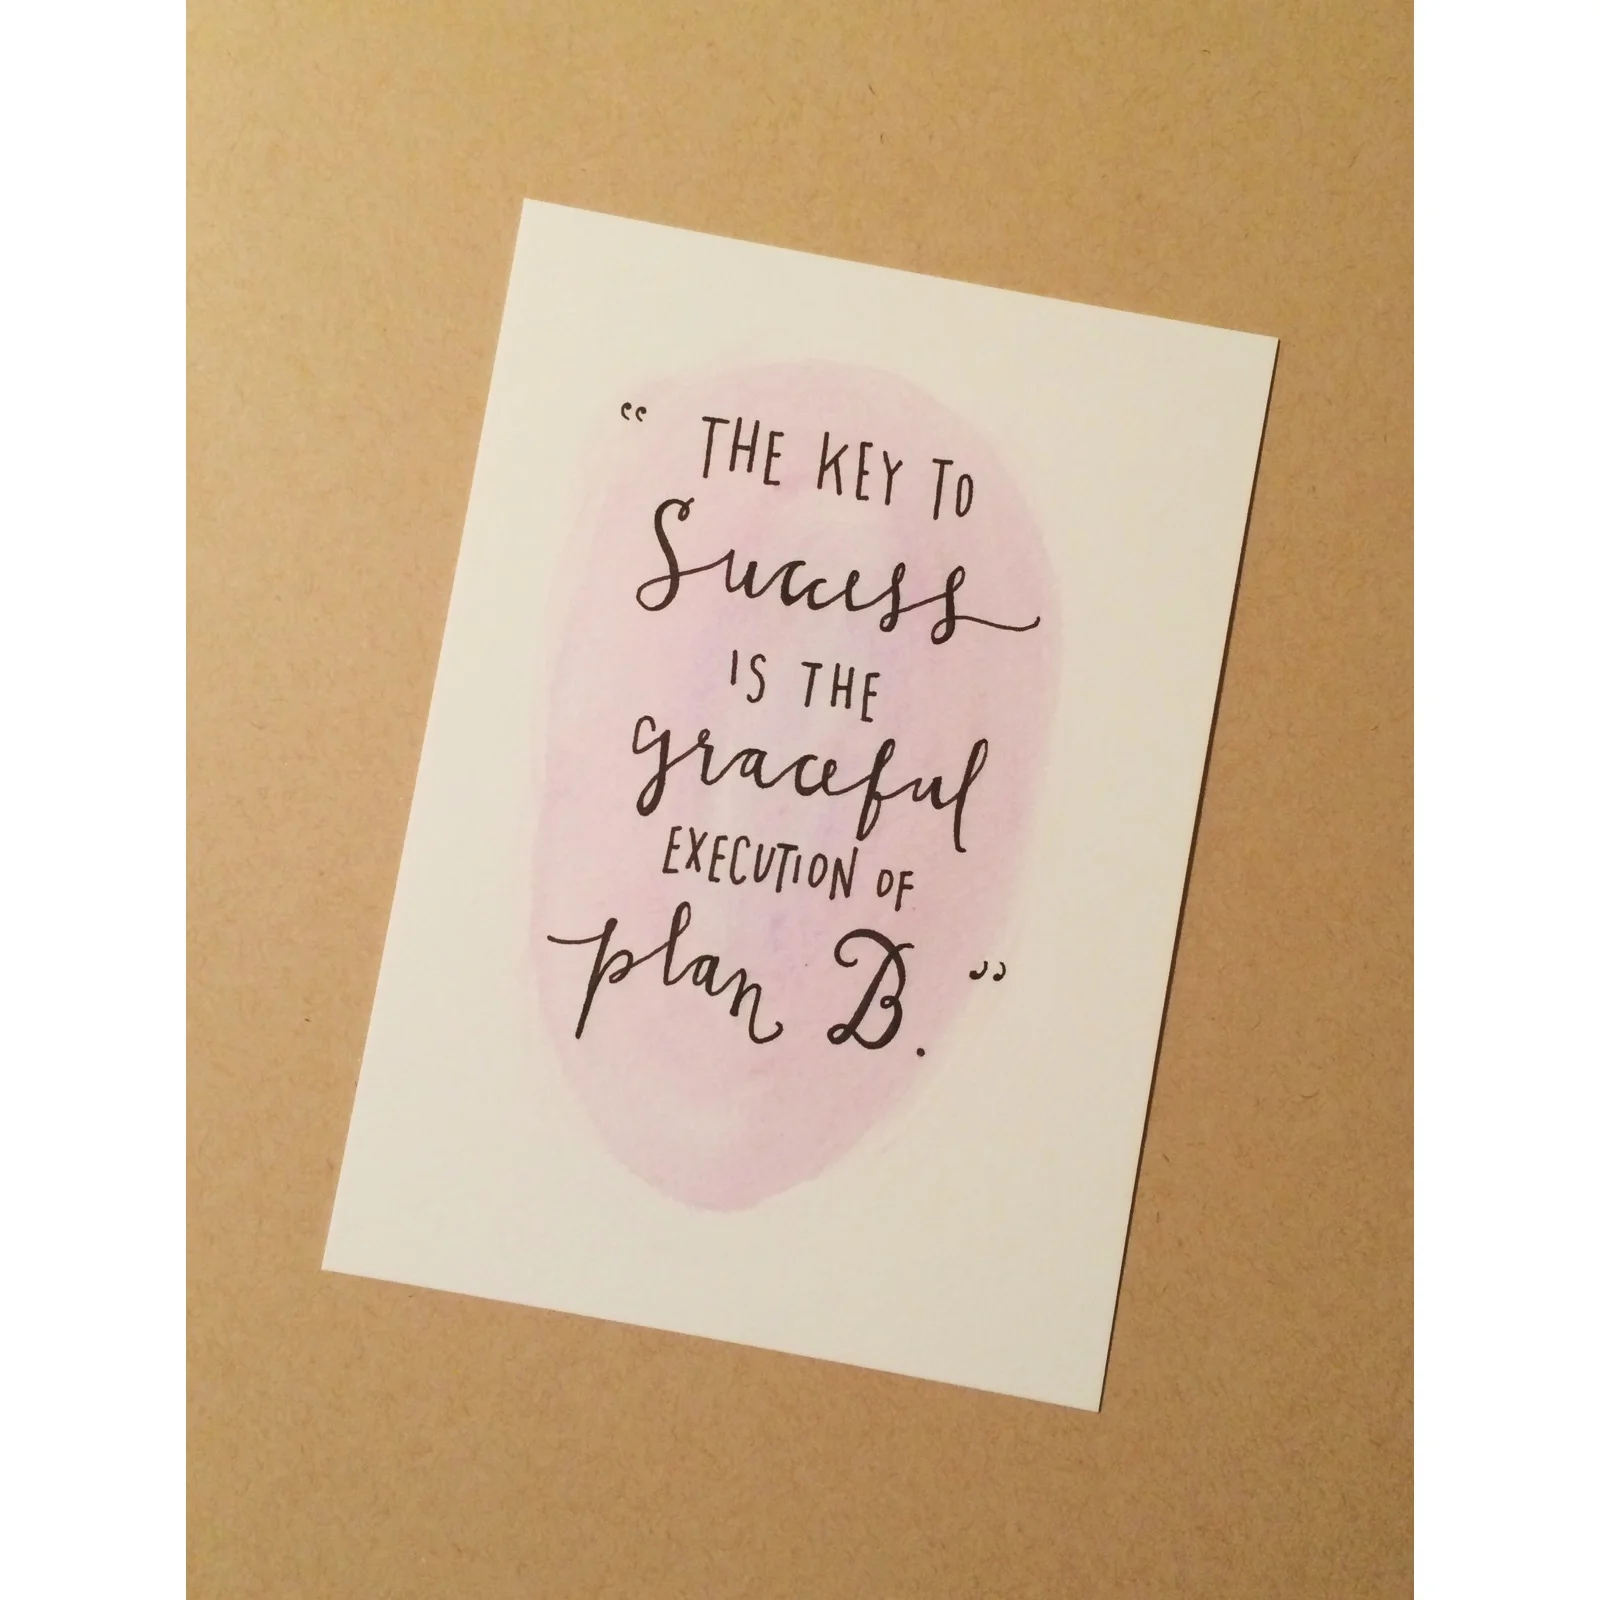 “ THE KEY TO
Success
IS THE
graceful
EXECUTION OF
plan B. ”